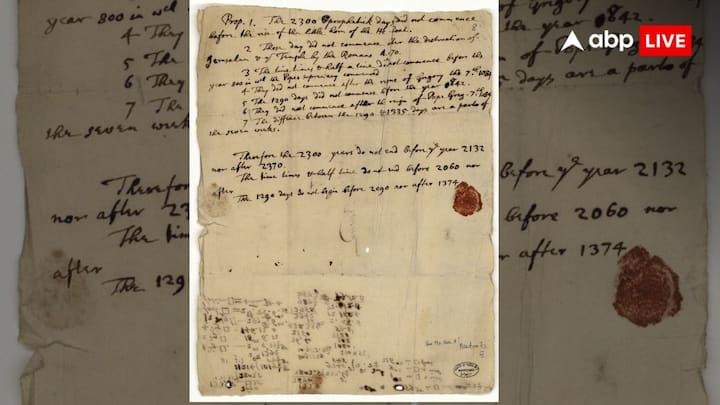 abp LIVE
Prop. 1. The 2300 prophetick days did not commence
before the rise of the little horn of the He Goat.
2 Those day did not commence after the destruction of
Jerusalem & ye Temple by the Romans A. 70.
3 The time times & half a time did not commence before the
year 800 in wch the Popes supremacy commenced
4 They did not commence after the reign of Gregory the 7th. 1084
5 The 1290 days did not commence before the year 842.
6 They did not commence after the reign of Pope Greg. 7th. 1084
7 The difference between the 1290 & 1335 days are a parts of
the seven weeks.
Therefore the 2300 years do not end before ye year 2132
nor after 2370.
The time times & half time do not end before 2060 nor
after
The 1290 days do not begin before 2090 nor after 1374
year 800 in wch
4 They
5 The
6 They
7 The
the seven week
Therefor
nor after 23
The tim
after
The 1290
the year 842.
days are a parts of
before ye year 2132
before 2060 nor
after 1374